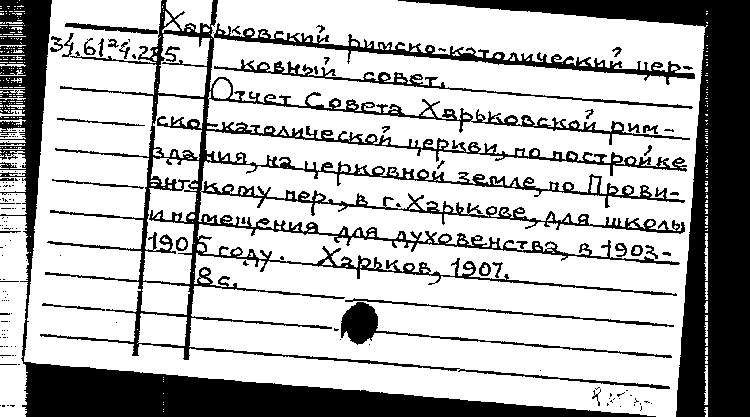 Харьковский римско-католический цер-
34.61.24.285. ковный совет.
Отчет Совета Харьковской рим-
ско-католической церкви, по постройке
здания, на церковной земле, по Прови-
антскому пер., в г. Харькове, для школы
и помещения для духовенства, в 1903-
1905 году. Харьков, 1907.
8 с.